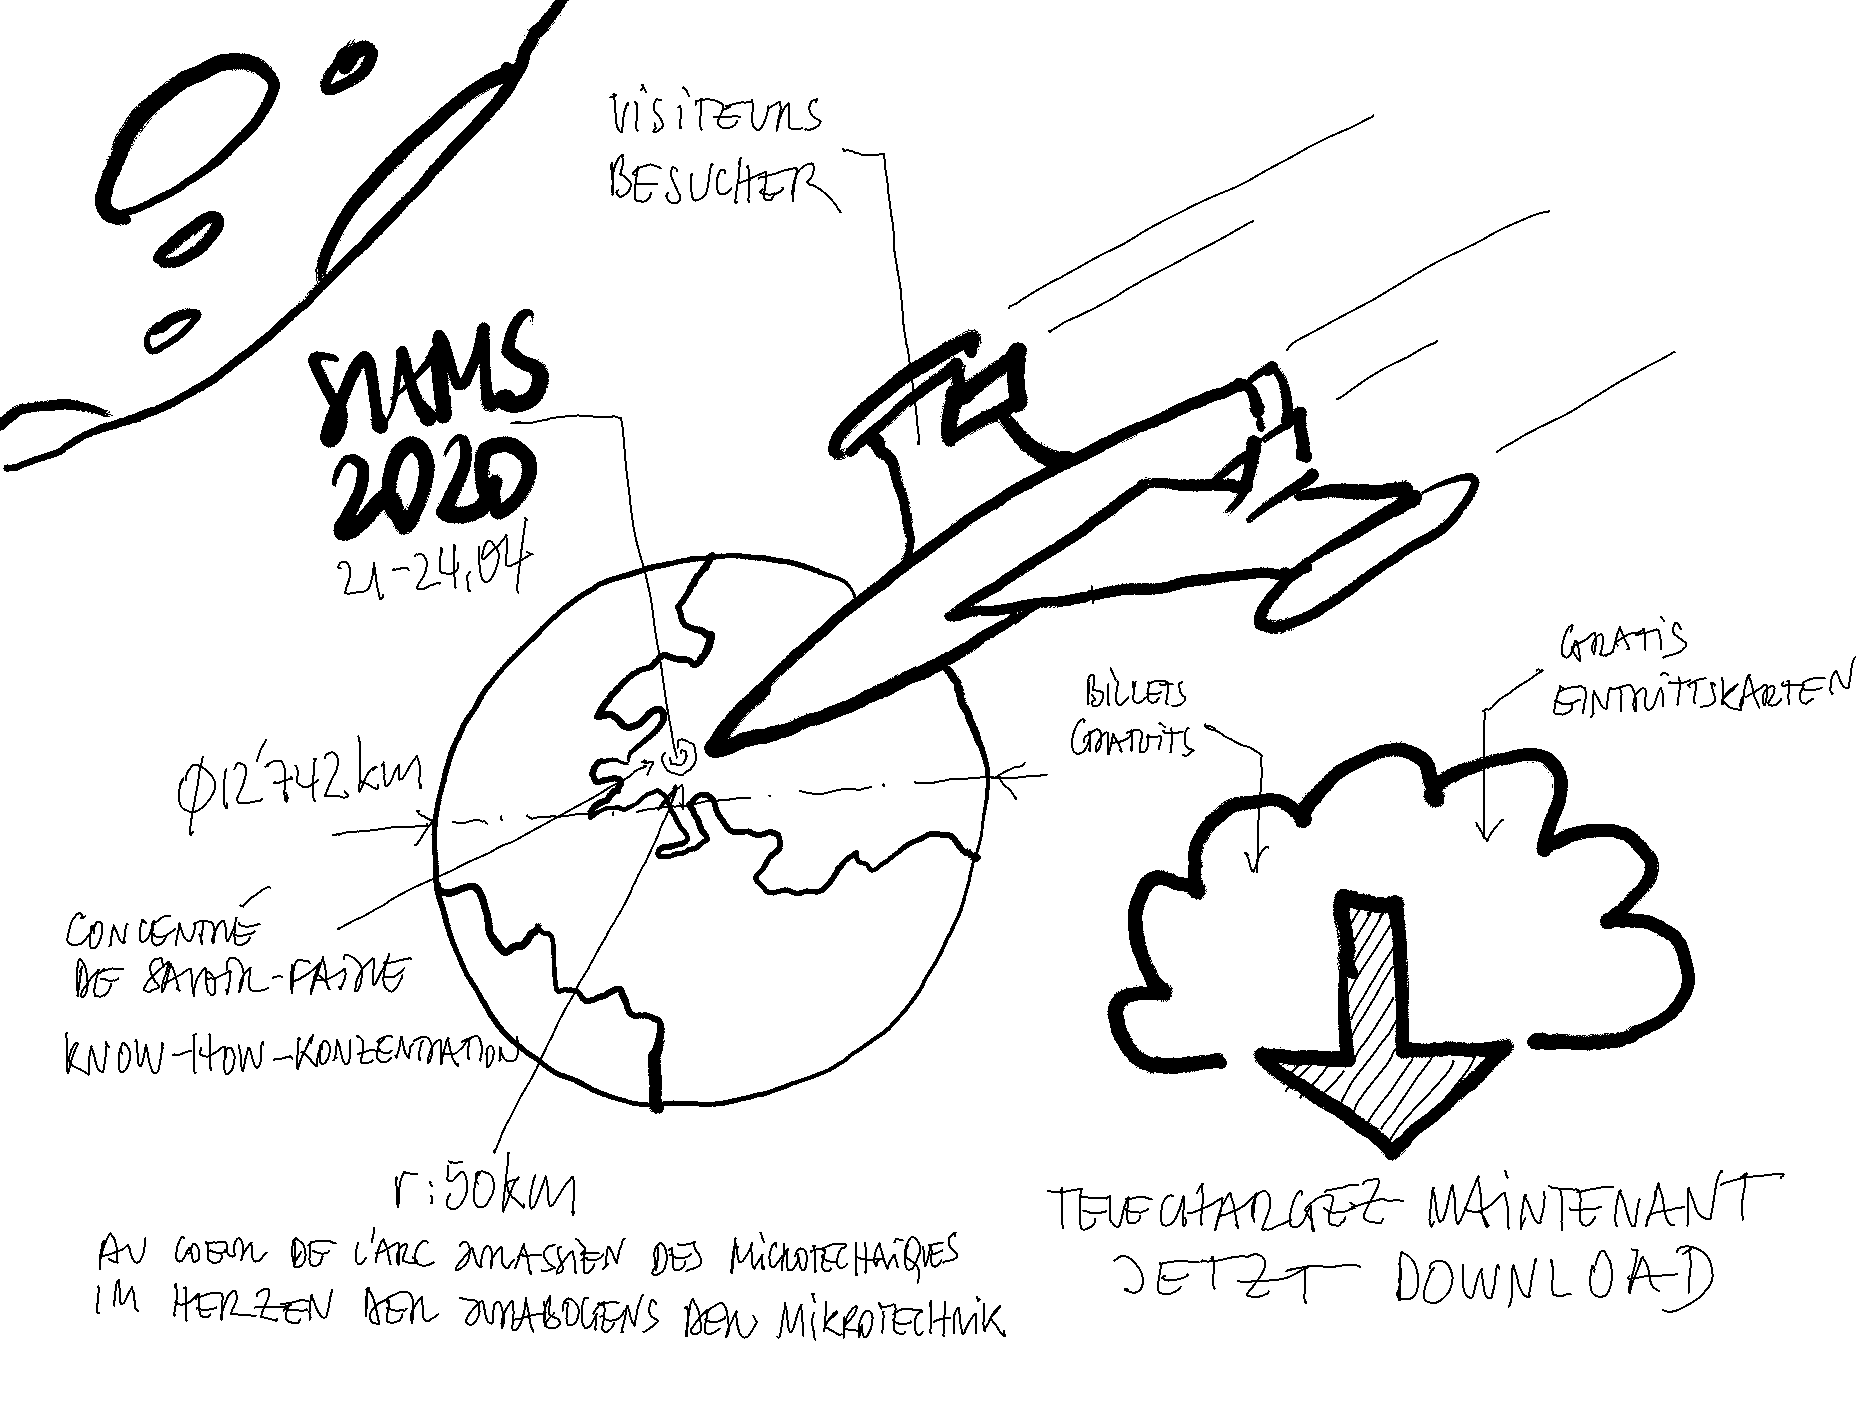 VISITEURS
BESUCHER
SIAMS
2020
21-24.04
GRATIS
EINTRITTSKARTEN
BILLETS
GRATUITS
Ø12'742km
CONCENTRÉ
DE SAVOIR-FAIRE
KNOW-HOW-KONZENTRATION
r:50km
AU COEUR DE L'ARC JURASSIEN DES MICROTECHNIQUES
IM HERZEN DER JURABOGENS DER MIKROTECHNIK
TELECHARGEZ MAINTENANT
JETZT DOWNLOAD